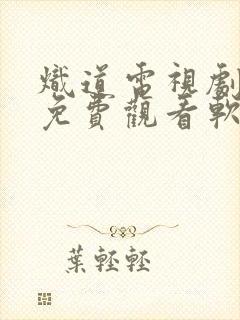 熾道電視劇
免費觀看軟
葉輕輕